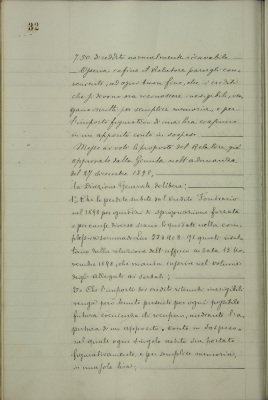 32
7.50 di reddito normalmente ricavabile.
Opina infine il Relatore parergli con-
veniente, ad ogni buon fine, che i crediti
che si devono ora riconoscere inesigibili, ven-
gano iscritti per semplice memoria, e per
l'importo figurativo di una lira ciascuno
in un apposito conto in sospeso.
Messe ai voti le proposte del Relatore, già
approvate dalla Giunta nell'adunanza
del 27 dicembre 1898,
la Direzione Generale delibera:
1° Che le perdite subite dal Credito Fondiario
nel 1898 per giudizi di espropriazione forzata
e per cause diverse siano liquidate nella com-
plessiva somma di
tano nella relazione dell'ufficio in data 18 No-
vembre 1898, che viene inserita nel volume
degli allegati ai verbali;
2° Che l'importo dei crediti ritenuti inesigibili
venga però tenuto presente per ogni possibile
futura eventualità di ricupero, mediante l'a-
pertura di un apposito conto in sospeso,
nel quale ogni singolo credito sia portato
figurativamente, e per semplice memoria,
in una sola lira;